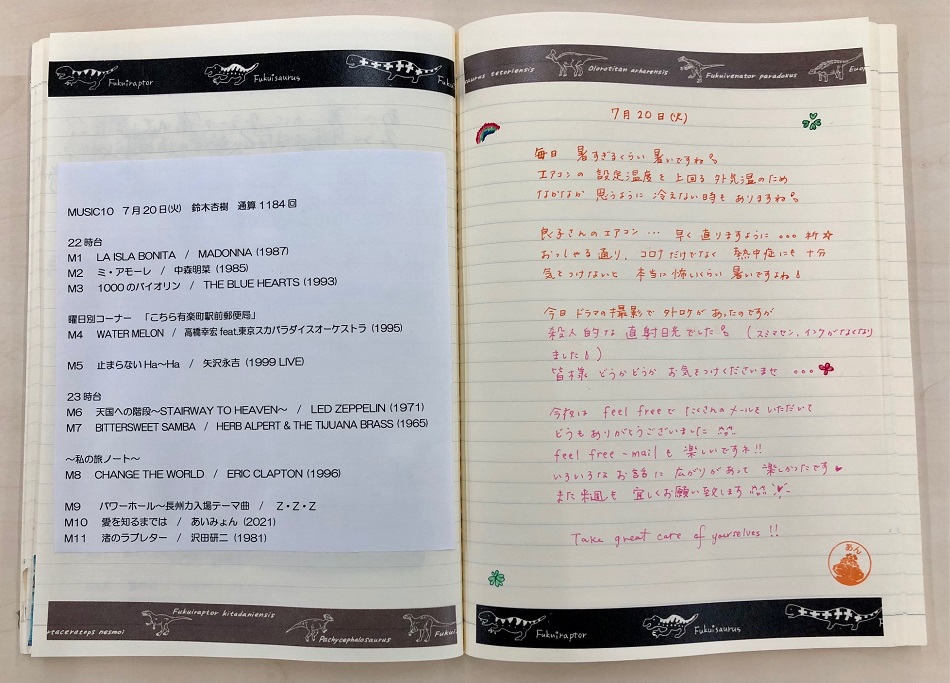 Fukuiraptor
Fukuisaurus
MUSIC10　7月20日(火)　鈴木杏樹　通算1184回
22時台
M1　LA ISLA BONITA　/　MADONNA (1987)
M2　ミ・アモーレ　/　中森明菜 (1985)
M3　1000のバイオリン　/　THE BLUE HEARTS (1993)
曜日別コーナー　「こちら有楽町駅前郵便局」
M4　WATER MELON　/　高橋幸宏 feat.東京スカパラダイスオーケストラ (1995)
M5　止まらないHa〜Ha　/　矢沢永吉 (1999 LIVE)
23時台
M6　天国への階段〜STAIRWAY TO HEAVEN〜　/　LED ZEPPELIN (1971)
M7　BITTERSWEET SAMBA　/　HERB ALPERT & THE TIJUANA BRASS (1965)
〜私の旅ノート〜
M8　CHANGE THE WORLD　/　ERIC CLAPTON (1996)
M9　パワーホール〜長州力入場テーマ曲　/　Z・Z・Z
M10　愛を知るまでは　/　あいみょん (2021)
M11　渚のラブレター　/　沢田研二 (1981)
rtaceratops nesmoi
Fukuiraptor kitadaniensis
Pachycephalosaurus
Fukui
saurus tetoriensis
Olorotitan arharensis
Fukuivenator paradoxus
7月20日(火)
毎日 暑すぎるくらい 暑いですね。
エアコンの 設定温度を 上回る 外気温のため
なかなか 思うように 冷えない時も ありますね。
良子さんのエアコン… 早く 直りますように…祈☆
おっしゃる通り、コロナだけでなく 熱中症にも 十分
気をつけないと 本当に 怖いくらい 暑いですよね!
今日 ドラマの撮影で 外ロケが あったのですが
殺人的な 直射日光でした。(スミマセン、インクがなくなり
ました!)
皆様 どうかどうか お気をつけくださいませ …
今夜は feel freeで たくさんのメールを いただいて
どうも ありがとうございました
feel free-mailも 楽しいですネ!!
いろいろな お話に 広がりがあって 楽しかったです♥
また来週も 宜しくお願い致します
Take great care of yourselves !!
あん
Fukuiraptor
Fukuisaurus